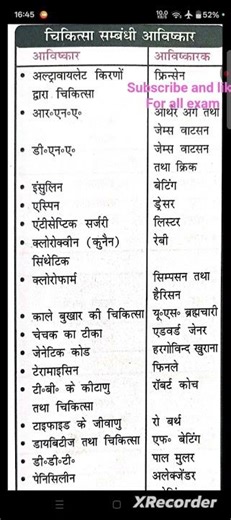 16:45
10.0
52%
चिकित्सा सम्बंधी आविष्कार
आविष्कार आविष्कारक
• अल्ट्रावायलेट किरणों फ्रिन्सेन
द्वारा चिकित्सा
Subscribe and lik
For all exam
• आर०एन०ए० आर्थर अर्ग तथा
जेम्स वाटसन
• डी०एन०ए० जेम्स वाटसन
तथा क्रिक
• इंसुलिन बेटिंग
• एस्पिन ड्रेसर
• एंटीसेप्टिक सर्जरी लिस्टर
• क्लोरोक्वीन (कुनैन) रेबी
सिंथेटिक
• क्लोरोफार्म सिम्पसन तथा
हैरिसन
• काले बुखार की चिकित्सा यू०एस० ब्रह्मचारी
• चेचक का टीका एडवर्ड जेनर
• जेनेटिक कोड हरगोविन्द खुराना
• टेरामाइसिन फिनले
• टी०बी० के कीटाणु रॉबर्ट कोच
तथा चिकित्सा
• टाइफाइड के जीवाणु रो बर्थ
• डायबिटीज तथा चिकित्सा एफ० बेटिंग
• डी०डी०टी० पाल मुलर
• पेनिसिलीन अलेक्जेंडर
XRecorder